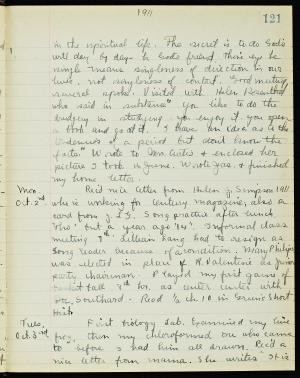 1911
121
in the spiritual life. The secret is to do God's
will day by day - be God's friend. Thine eye be
single means singleness of direction in our
lives, not singleness of content. Good meeting
several spoke. Visited with Helen
who said in substance "You like to do the
drudgery in studying, you enjoy it, you open
a book and go at it. I have an idea as to the
of a period but don't know the
facts." Wrote to & enclosed her
picture I took in June. Wrote Jas. & finished
my home letter.
Mon. Rec'd nice letter from Helen J. Simpson 1911
Oct. 2nd who's working for Century magazine, also a
card from J. Song practice after lunch
but a year ago Informal class
meeting 7th Lillian Lang had to resign as
Song leader because of a condition. Mary Philips
was elected in place of R. Valentine as junior
party chairman. Played my first game of
ball 8th hr. as center
Southard. Read ch. 10 in Green's Short
Hist.
Tues. First Biology Lab. Examined my live
Oct. 3rd frog, then my chloroformed one who came
to before I had him all drawn. Rec'd a
nice letter from mama. She writes "It is